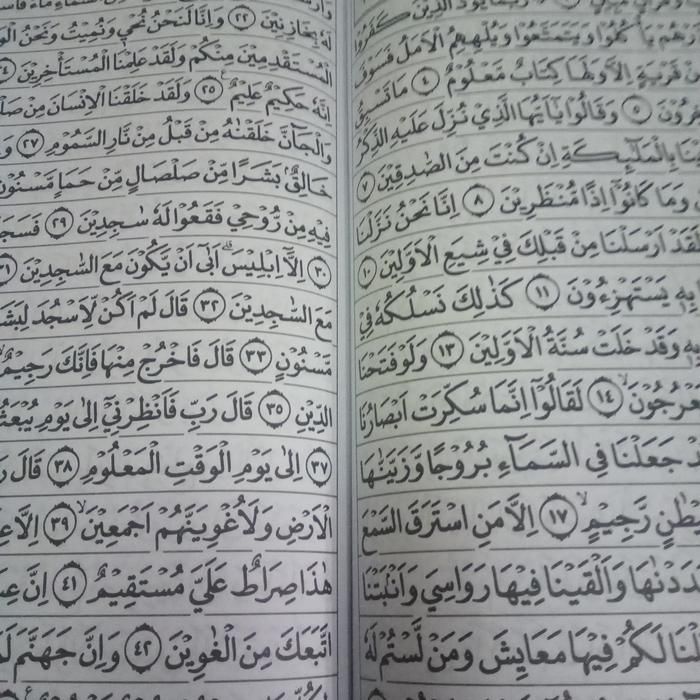 يَوَدُّ الَّذِيْنَ كَفَرُوْا
يَأْكُلُوْا وَيَتَمَتَّعُوْا وَيُلْهِهِمُ الْاَمَلُ فَسَوْفَ
قَرْيَةٍ اِلَّا وَلَهَا كِتَابٌ مَّعْلُوْمٌ ٤ مَا تَسْبِقُ
٥ وَقَالُوْا يٰٓاَيُّهَا الَّذِيْ نُزِّلَ عَلَيْهِ الذِّكْرُ
بِالْمَلٰۤىِٕكَةِ اِنْ كُنْتَ مِنَ الصّٰدِقِيْنَ ٧
وَمَا كَانُوْٓا اِذًا مُّنْظَرِيْنَ ٨ اِنَّا نَحْنُ نَزَّلْنَا
اَرْسَلْنَا مِنْ قَبْلِكَ فِيْ شِيَعِ الْاَوَّلِيْنَ ١٠
بِهٖ يَسْتَهْزِءُوْنَ ١١ كَذٰلِكَ نَسْلُكُهٗ فِيْ
وَقَدْ خَلَتْ سُنَّةُ الْاَوَّلِيْنَ ١٣ وَلَوْ فَتَحْنَا
١٤ لَقَالُوْٓا اِنَّمَا سُكِّرَتْ اَبْصَارُنَا
جَعَلْنَا فِى السَّمَاۤءِ بُرُوْجًا وَّزَيَّنّٰهَا
رَّجِيْمٍ ۙ ١٧ اِلَّا مَنِ اسْتَرَقَ السَّمْعَ
وَاَلْقَيْنَا فِيْهَا رَوَاسِيَ وَاَنْۢبَتْنَا
لَكُمْ فِيْهَا مَعَايِشَ وَمَنْ لَّسْتُمْ لَهٗ
لَهٗ بِخَازِنِيْنَ ٢٢ وَاِنَّا لَنَحْنُ نُحْيٖ وَنُمِيْتُ وَنَحْنُ
الْمُسْتَقْدِمِيْنَ مِنْكُمْ وَلَقَدْ عَلِمْنَا الْمُسْتَأْخِرِيْنَ
اِنَّهٗ حَكِيْمٌ عَلِيْمٌ ࣖ ٢٥ وَلَقَدْ خَلَقْنَا الْاِنْسَانَ مِنْ
وَالْجَاۤنَّ خَلَقْنٰهُ مِنْ قَبْلُ مِنْ نَّارِ السَّمُوْمِ ٢٧
خَالِقٌۢ بَشَرًا مِّنْ صَلْصَالٍ مِّنْ حَمَاٍ مَّسْنُوْنٍ
فِيْهِ مِنْ رُّوْحِيْ فَقَعُوْا لَهٗ سٰجِدِيْنَ ٢٩
٣٠ اِلَّآ اِبْلِيْسَۗ اَبٰىٓ اَنْ يَّكُوْنَ مَعَ السّٰجِدِيْنَ ٣١
مَعَ السّٰجِدِيْنَ ٣٢ قَالَ لَمْ اَكُنْ لِّاَسْجُدَ
مَّسْنُوْنٍ ٣٣ قَالَ فَاخْرُجْ مِنْهَا فَاِنَّكَ رَجِيْمٌ
الدِّيْنِ ٣٥ قَالَ رَبِّ فَاَنْظِرْنِيْٓ اِلٰى يَوْمِ
٣٧ اِلٰى يَوْمِ الْوَقْتِ الْمَعْلُوْمِ ٣٨ قَالَ
الْاَرْضِ وَلَاُغْوِيَنَّهُمْ اَجْمَعِيْنَ ۙ ٣٩ اِلَّا
هٰذَا صِرَاطٌ عَلَيَّ مُسْتَقِيْمٌ ٤١ اِنَّ
اتَّبَعَكَ مِنَ الْغٰوِيْنَ ٤٢ وَاِنَّ جَهَنَّمَ